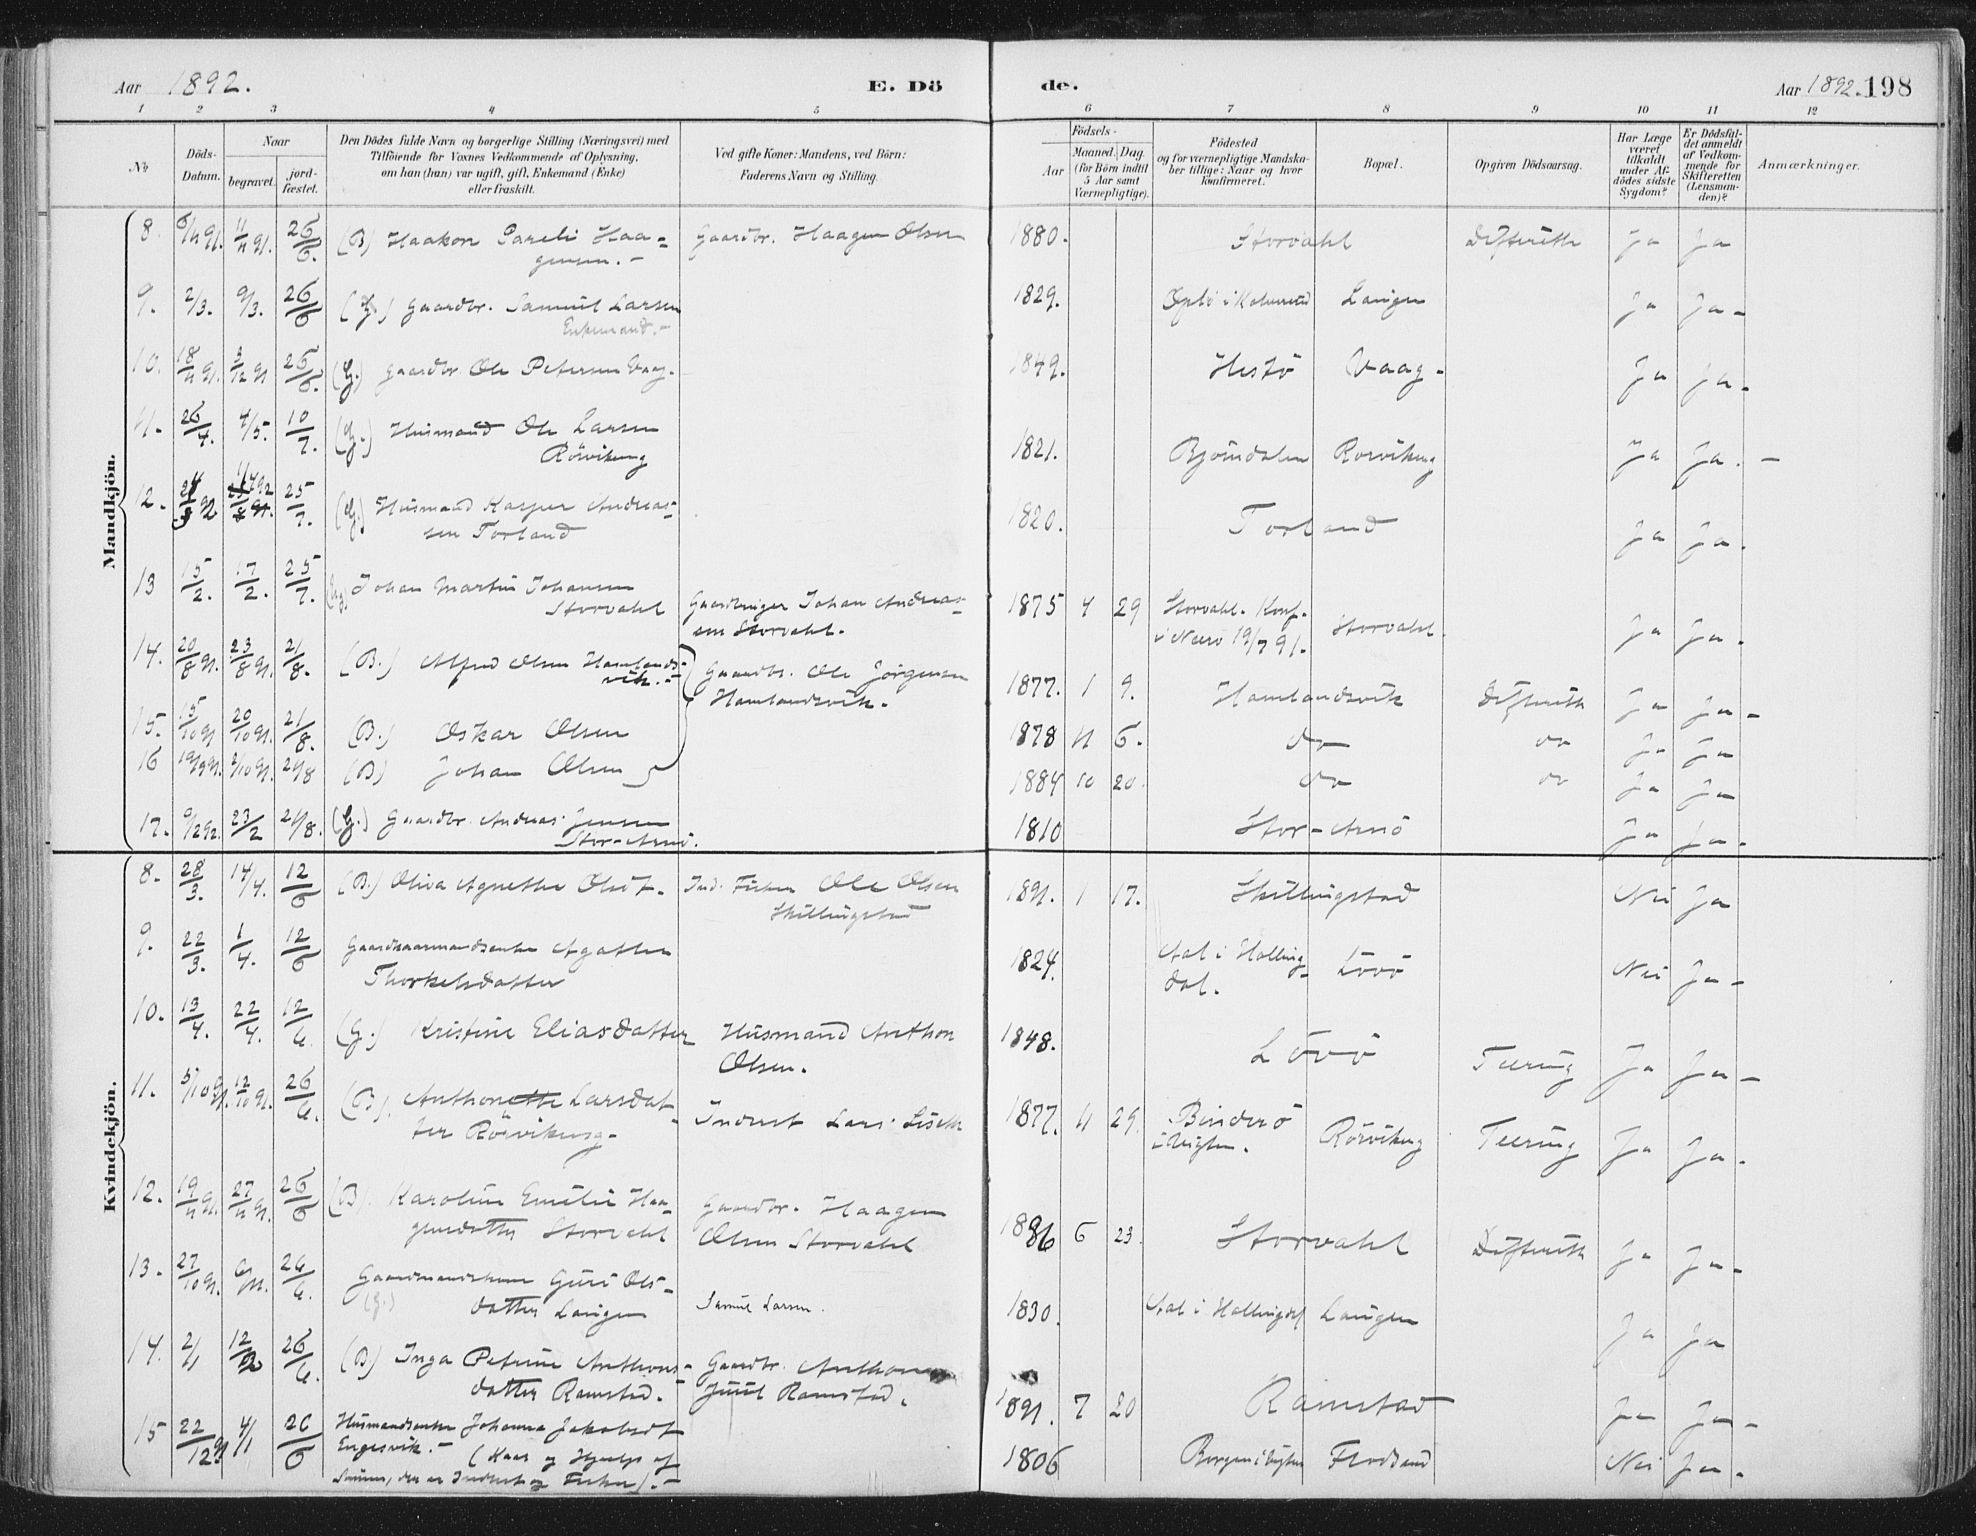 Aar 1892. E. Dö de. Aar 1892. 198
1 2 3 4 5 6 7 8 9 10 11 12
No
Döds-Datum.
Naar
begravet.
jordfæstet.
Den Dödes fulde Navn og borgerlige Stilling (Næringsvei) med
Tilföiende for Voxnes Vedkommende af Oplysning,
om han (hun) var ugift, gift, Enkemand (Enke)
eller fraskilt.
Ved gifte Koner: Mandens, ved Börn:
Faderens Navn og Stilling.
Födsels-
Aar
Maaned. Dag.
(for Börn indtil
5 Aar samt
Værnepligtige).
Födested
og for værnepligtige Mandska-
ber tillige: Naar og hvor
konfirmeret.
Bopæl.
Opgiven Dödsaarsag.
Har Læge
været
tilkaldt
under Af-
dödes sidste
Sygdom?
Er Dödsfal-
det anmeldt
af Vedkom-
mende for
Skifteretten
(Lensman-
den)?
Anmærkninger.
Mandkjön.
8. 6/11 91. 11/11 91. 26/6. (B) Haakon Pareli Haa- Gaardbr. Haagen Olsen 1880. Storvahl Difterith Ja Ja
gensen.-
9. 2/3. 9/3. 26/6 (G) Gaardbr. Samuel Larsen 1829. Laugen Ja Ja-
Enkemand.-
10. 18/11 91. 3/12 91 26/6. (G.) Gaardbr Ole Petersen Vaag. 1849. Hestö Vaag- Ja Ja-
11. 26/4. 4/5. 10/7. (G.) Husmand Ole Larsen 1821. Bjöindalen Rörvikeng Ja Ja.-
Rörvikeng
12. 25/7. (G.) Husmand Kasper Andreas- 1820. Torland Ja Ja.
sen Torland
13 15/2. 17/2. 25/7. Johan Martin Johansen 1875 4 29 Storvahl. Konf. Storvahl. Ja Ja.
Storvahl Gaardbruger Johan Andreas- i Nærö 19/7 91.
sen Storvahl.
14. 20/8 91. 23/8 91. 21/8. (B.) Alfred Olsen Hamlands- Gaardbr. Ole Jörgensen 1877. 1 9. Hamlandsvik Difterith Ja Ja-
vik.- Hamlandsvik.
15. 15/10 91 20/10 91. 21/8. (B.) Oskar Olsen 1878 11 6. do do Ja Ja
16 19/9 91. 2/10 91. 21/8 (B) Johan Olsen 1884 10 20. do do Ja Ja
17. 9/2 92. 23/2 21/8. (G.) Gaardbr. Andreas Jensen 1810 Stor-Arnö Ja Ja-
Stor-Arnö.
Kvindekjön.
8. 28/3. 14/4. 12/6 (B.) Oliva Agnethe Olsdt. Ind. Fisker Ole Olsen 1891. 1 17. Skillingstad Nei Ja
Skillingstad
9. 22/3. 1/4. 12/6 Gaardkaarmandsenke Agathe 1824. Aal i Halling- Lövö Nei Ja-
Thorkelsdatter dal.
10. 13/4. 22/4. 12/6. (G.) Kristine Eliasdatter Husmand Anthon 1848. Lövö Tæring Ja Ja-
Olsen.
11. 5/10 91. 12/10 91. 26/6. (B). Anthonette Larsdat- Inderst Lars 1877. 11 29. Binderö Rörvikeng Tæring Ja Ja.
ter Rörvikeng-
12. 19/11 91. 27/11 91. 26/6 (B). Karoline Emilie Haa- Gaardbr. Haagen 1886 6 23. Storvahl Difterith Ja Ja-
gensdatter Storvahl Olsen Storvahl
13. 27/10 91. 26/6. Gaardmandskone Guri Ols- Samuel Larsen. 1830. Aal i Hallingdal Laugen Ja Ja
(G.) datter Laugen
14. 2/1 26/6. (B) Inga Petrine Anthons- Gaardbr. Anthon 1891. 7 20 Ramstad Ja Ja-
datter Ramstad.- Juul Ramstad.
15 22/12 91 4/1 26/6 Husmandsenke Johanna Jakobsdt 1806 Flodsand Nei Ja-
Engesvik.- (Kaar og Hjælp af
Sönnen, der er Inderst og Fisker).-